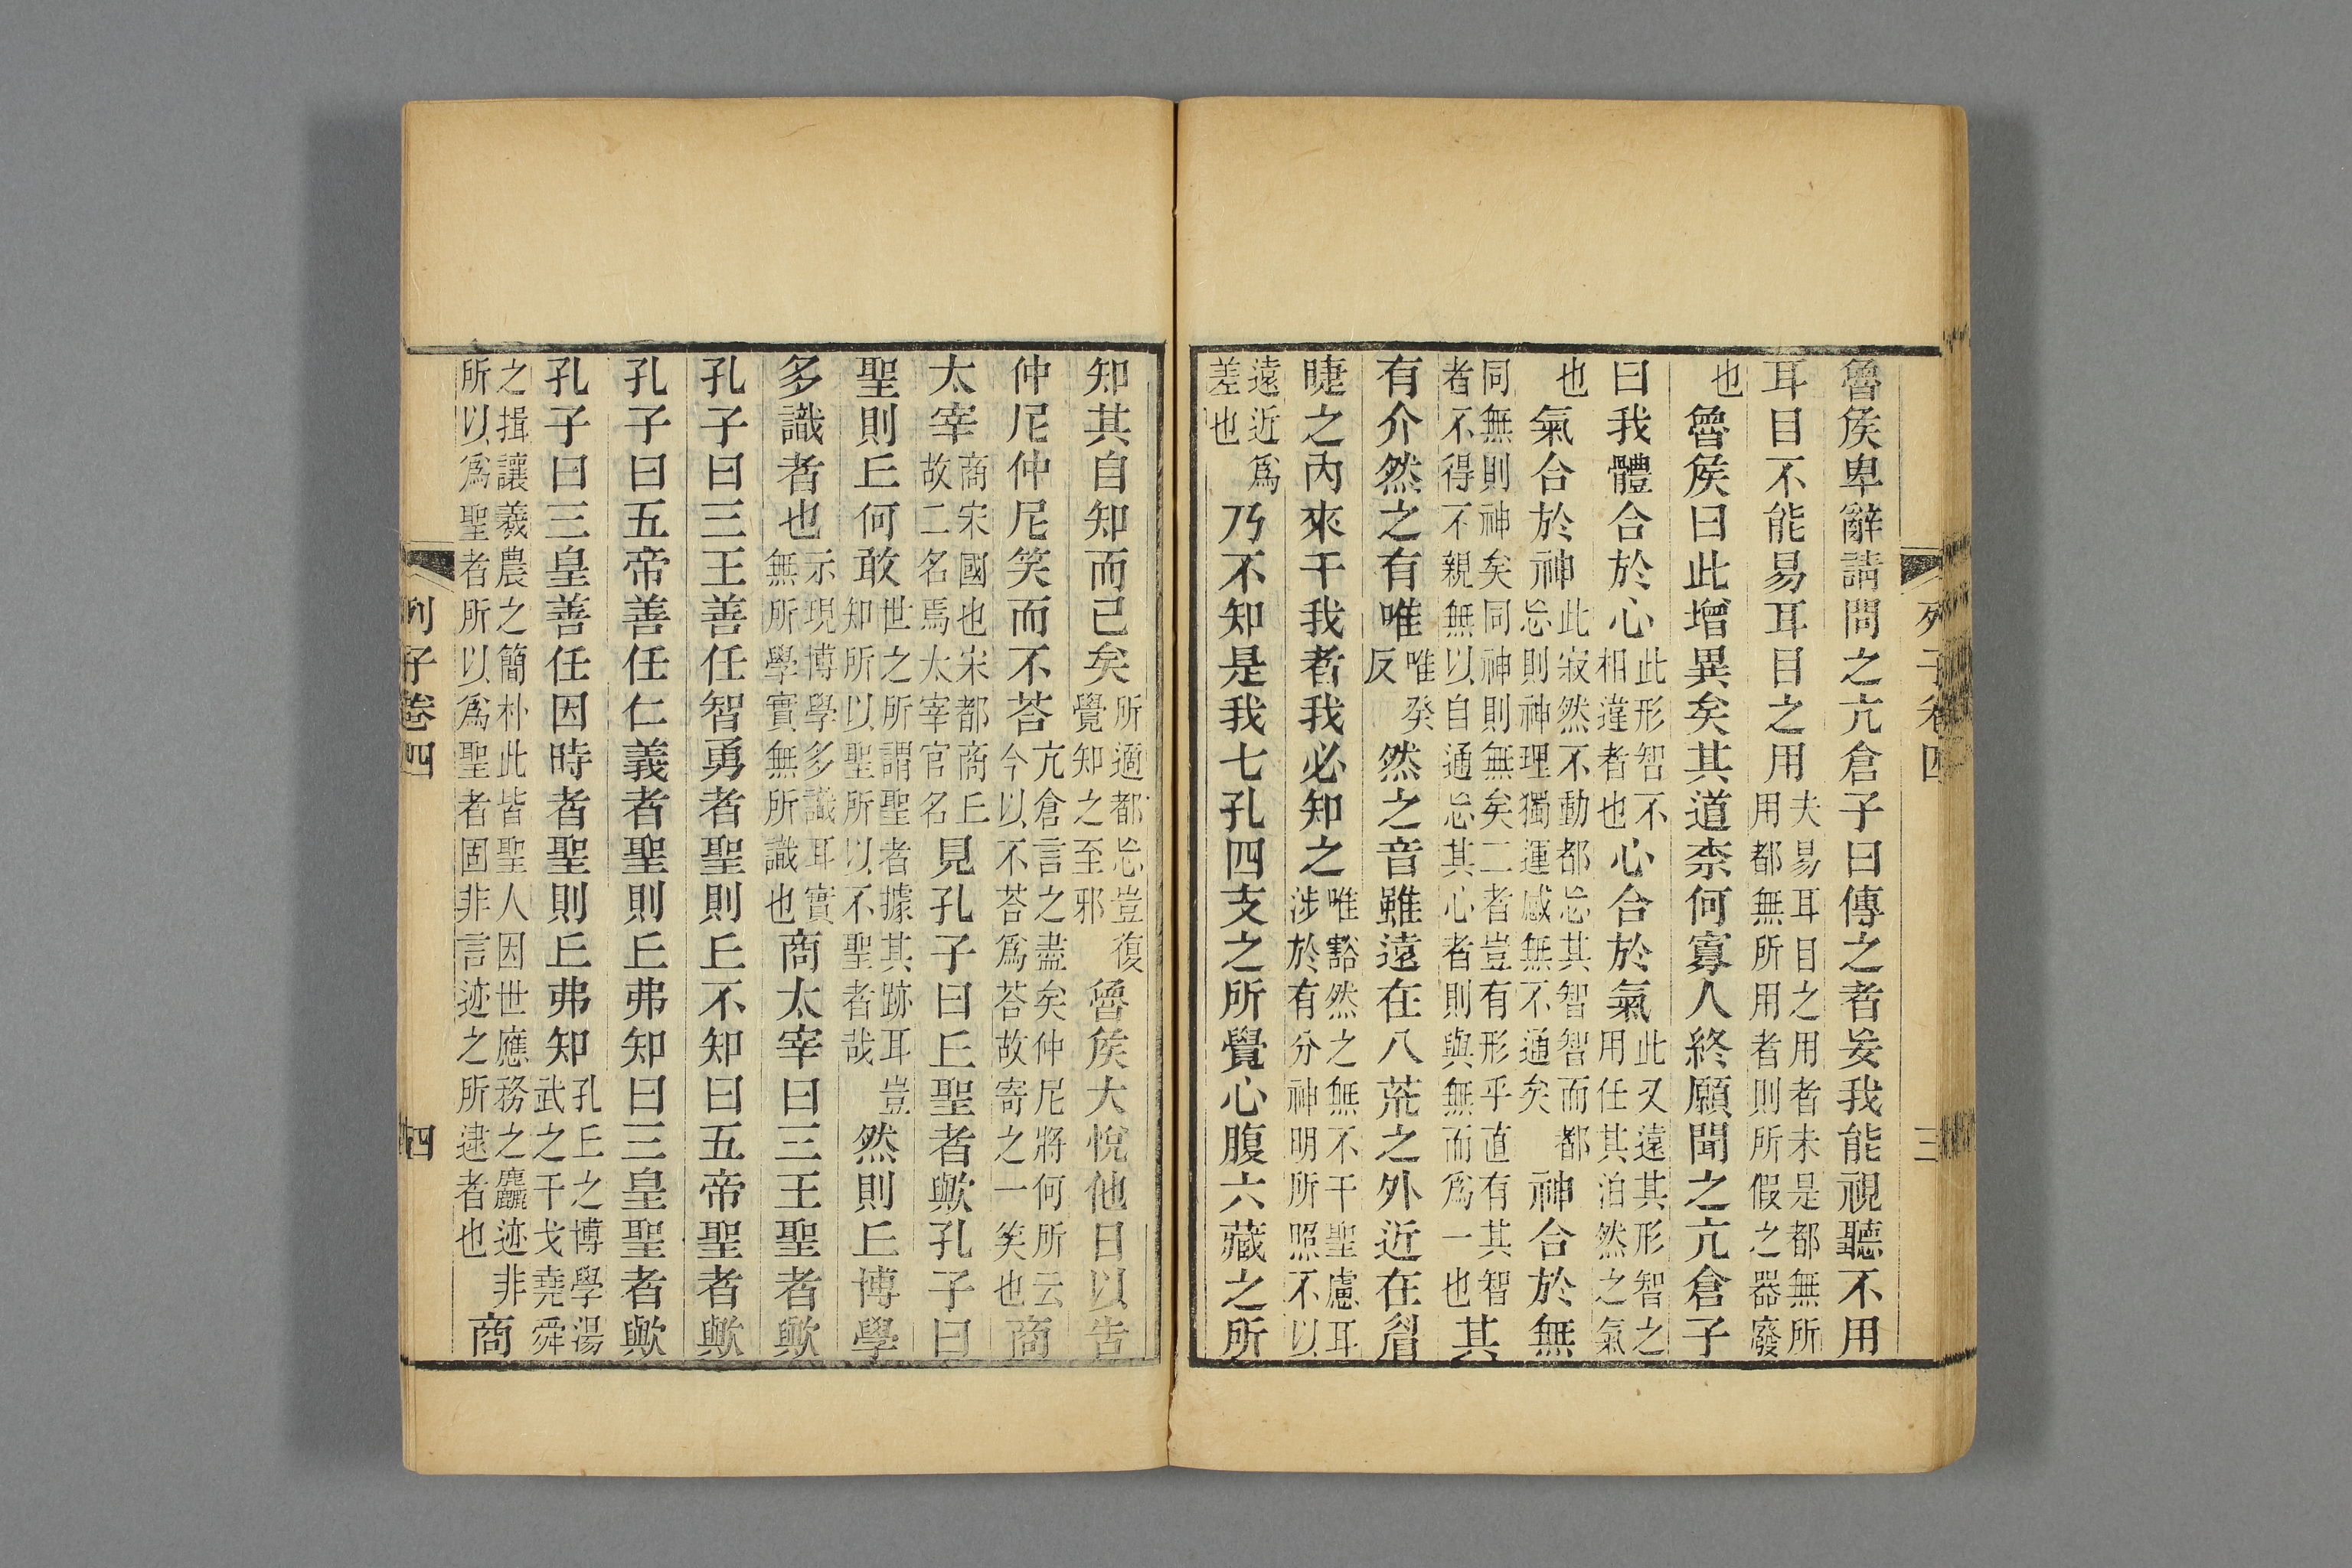 列子卷四　三
魯矦卑辭請問之亢倉子曰傳之者妄我能視聽不用
耳目不能易耳目之用夫易耳目之用者未是都無所用都無所用者則所假之器廢
也魯矦曰此增異矣其道柰何寡人終願聞之亢倉子
曰我體合於心此形智不相違者也心合於氣此又遠其形智之用任其泊然之氣
也氣合於神此寂然不動都忘其智智而都忘則神理獨運感無不通矣神合於無
同無則神矣同神則無矣二者豈有形乎直有其智者不得不親無以自通忘其心者則與無而爲一也其
有介然之有唯唯癸反然之音雖遠在八荒之外近在眉
睫之內來干我者我必知之唯豁然之無不干聖慮耳涉於有分神明所照不以
遠近爲差也乃不知是我七孔四支之所覺心腹六藏之所
知其自知而已矣所適都忘豈復覺知之至邪魯矦大悅他日以告
仲尼仲尼笑而不荅亢倉言之盡矣仲尼將何所云今以不荅爲荅故寄之一笑也商
太宰商宋國也宋都商丘故二名焉太宰官名見孔子曰丘聖者歟孔子曰
聖則丘何敢世之所謂聖者據其跡耳豈知所以聖所以不聖者哉然則丘博學
多識者也示現博學多識耳實無所學實無所識也商太宰曰三王聖者歟
孔子曰三王善任智勇者聖則丘不知曰五帝聖者歟
孔子曰五帝善任仁義者聖則丘弗知曰三皇聖者歟
孔子曰三皇善任因時者聖則丘弗知孔丘之博學湯武之干戈堯舜
之揖讓羲農之簡朴此皆聖人因世應務之麤迹非所以爲聖者所以爲聖者固非言迹之所逮者也商
列子卷四　四